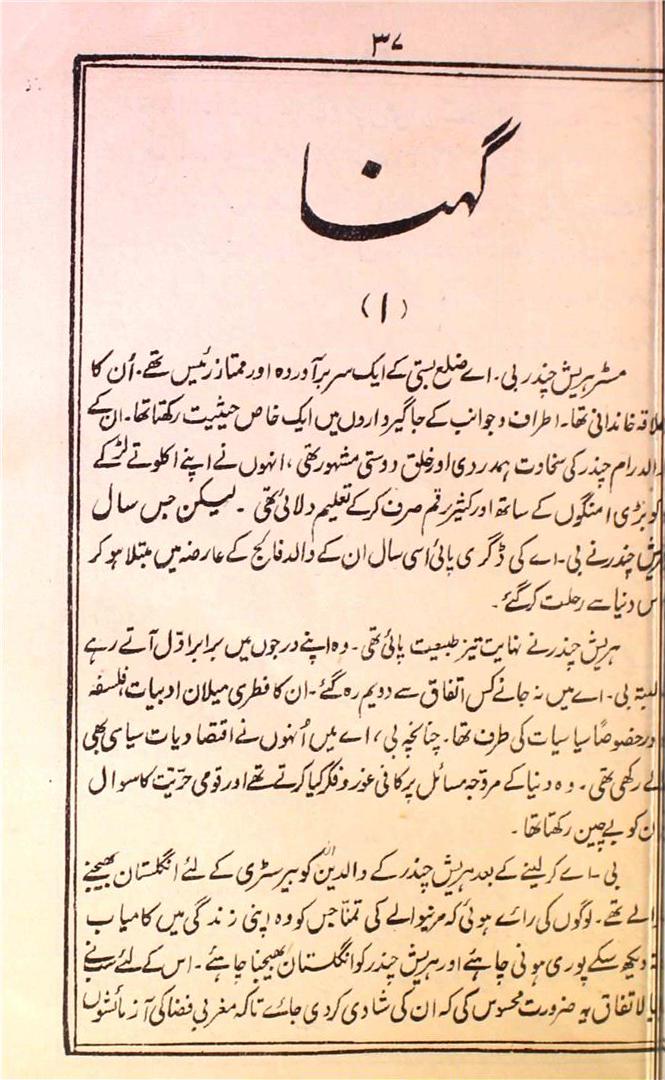 ۳۷
گہنا
(۱)
مسٹر ہریش چندر بی۔ اے ضلع بستی کے ایک سربرآوردہ اور ممتاز رئیس تھے۔ اُن کا
علاقہ خاندانی تھا۔ اطراف و جوانب کے جاگیرداروں میں ایک خاص حیثیت رکھتا تھا۔ ان کے
والد رام چندر کی سخاوت ہمدردی اور خلق دوستی مشہور تھی، انہوں نے اپنے اکلوتے لڑکے
کو بڑی امنگوں کے ساتھ اور کثیر رقم صرف کر کے تعلیم دلائی تھی۔ لیکن جس سال
ہریش چندر نے بی۔ اے کی ڈگری پائی اسی سال ان کے والد فالج کے عارضہ میں مبتلا ہو کر
اس دنیا سے رحلت کر گئے۔
ہریش چندر نے نہایت تیز طبیعت پائی تھی۔ وہ اپنے درجوں میں برابر اوّل آتے رہے
البتہ بی۔ اے میں نہ جانے کس اتفاق سے دویم رہ گئے۔ ان کا فطری میلان ادبیات، فلسفہ
اور خصوصاً سیاسیات کی طرف تھا۔ چنانچہ بی، اے میں اُنہوں نے اقتصادیات سیاسی بھی
لے رکھی تھی۔ وہ دنیا کے مروّجہ مسائل پر کافی غور و فکر کیا کرتے تھے اور قومی حرّیت کا سوال
ان کو بے چین رکھتا تھا۔
بی۔ اے کر لینے کے بعد ہریش چندر کے والدین کو بیرسٹری کے لئے انگلستان بھیجنے
والے تھے۔ لوگوں کی رائے ہوئی کہ مرنیوالے کی تمنّا جس کو وہ اپنی زندگی میں کامیاب
نہ دیکھ سکے پوری ہونی چاہئے اور ہریش چندر کو انگلستان بھیجنا چاہئے۔ اس کے لئے سب نے
بالاتفاق یہ ضرورت محسوس کی کہ ان کی شادی کر دی جائے تاکہ مغربی فضا کی آزمائشوں